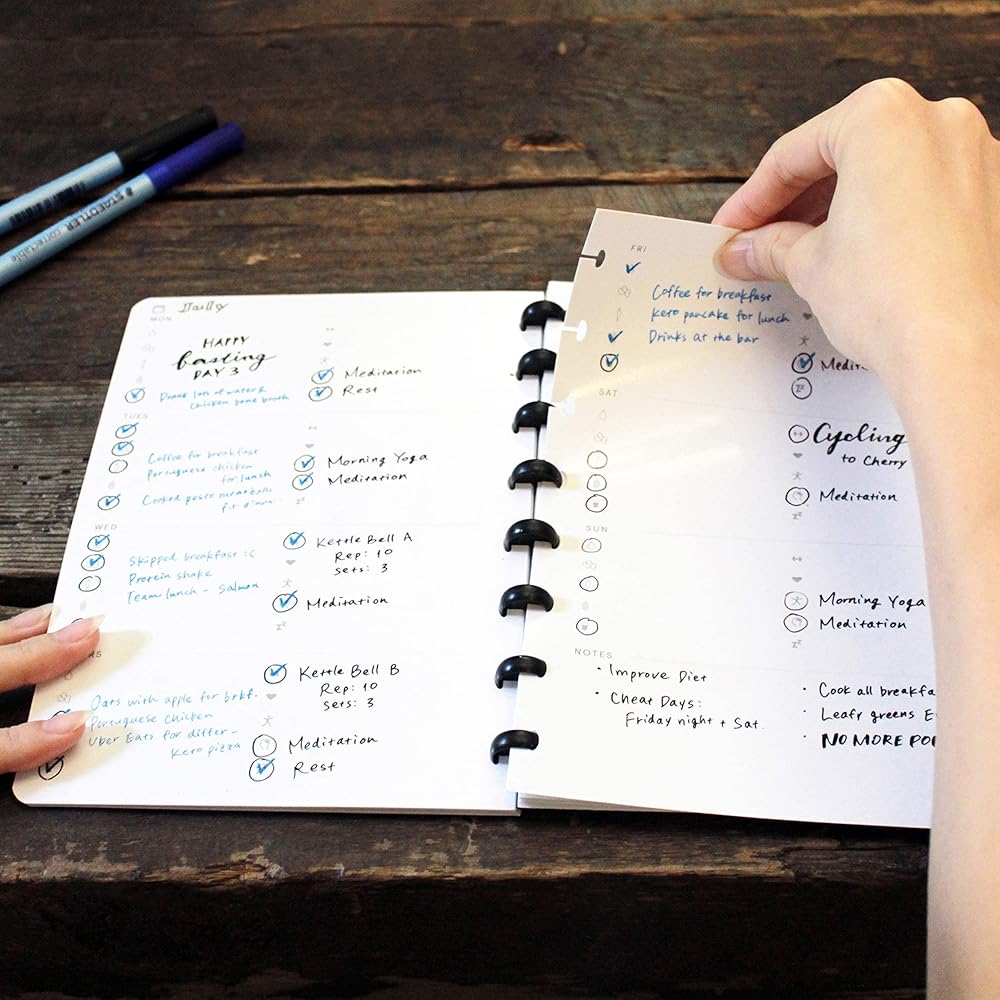 STAEDTLER
correctable
Daily
MON
HAPPY
fasting
DAY 3
Drank lots of water &
chicken bone broth
Meditation
Rest
TUES
Coffee for breakfast
Portuguese chicken
for lunch
Cooked pesto meatballs
for dinner
Morning Yoga
Meditation
zz
WED
Skipped breakfast :C
Protein shake
Team lunch - Salmon
Kettle Bell A
Rep: 10
Sets: 3
Meditation
zz
RS
Oats with apple for brkf.
Portuguese Chicken
Uber Eats for differ -
Keto pizza
Kettle Bell B
Rep: 10
Sets: 3
Meditation
Rest
FRI
Coffee for breakfast
Keto pancake for lunch
Drinks at the bar
zz
SAT
Cycling
to Cherry
Meditation
zz
SUN
Morning Yoga
Meditation
zz
NOTES
• Improve Diet
• Cheat Days:
Friday night + Sat.
• Cook all breakfa
• Leafy greens E
• NO MORE PO